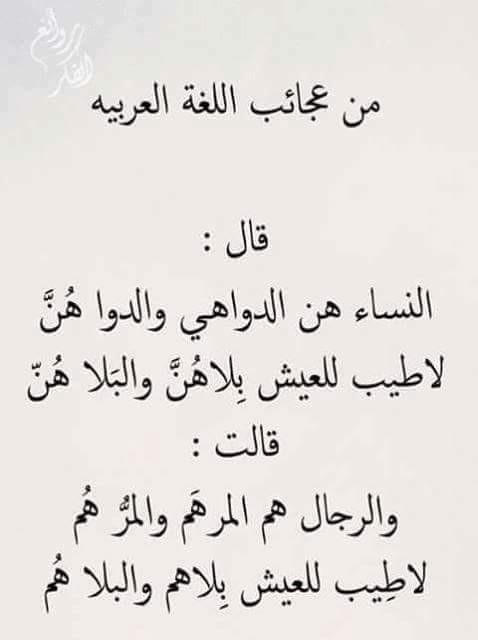 روائع
الفكر
من عجائب اللغة العربيه
قال :
النساء هن الدواهي والدوا هُنَّ
لاطيب للعيش بِلاهُنَّ والبَلا هُنّ
قالت :
والرجال هم المرهَم والمرُّ هُم
لاطِيب للعيش بِلاهم والبلا هُم